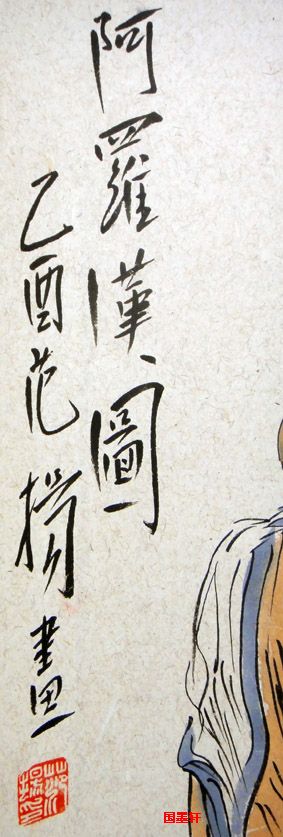 阿羅漢圖
乙酉范揚畫
国墨轩